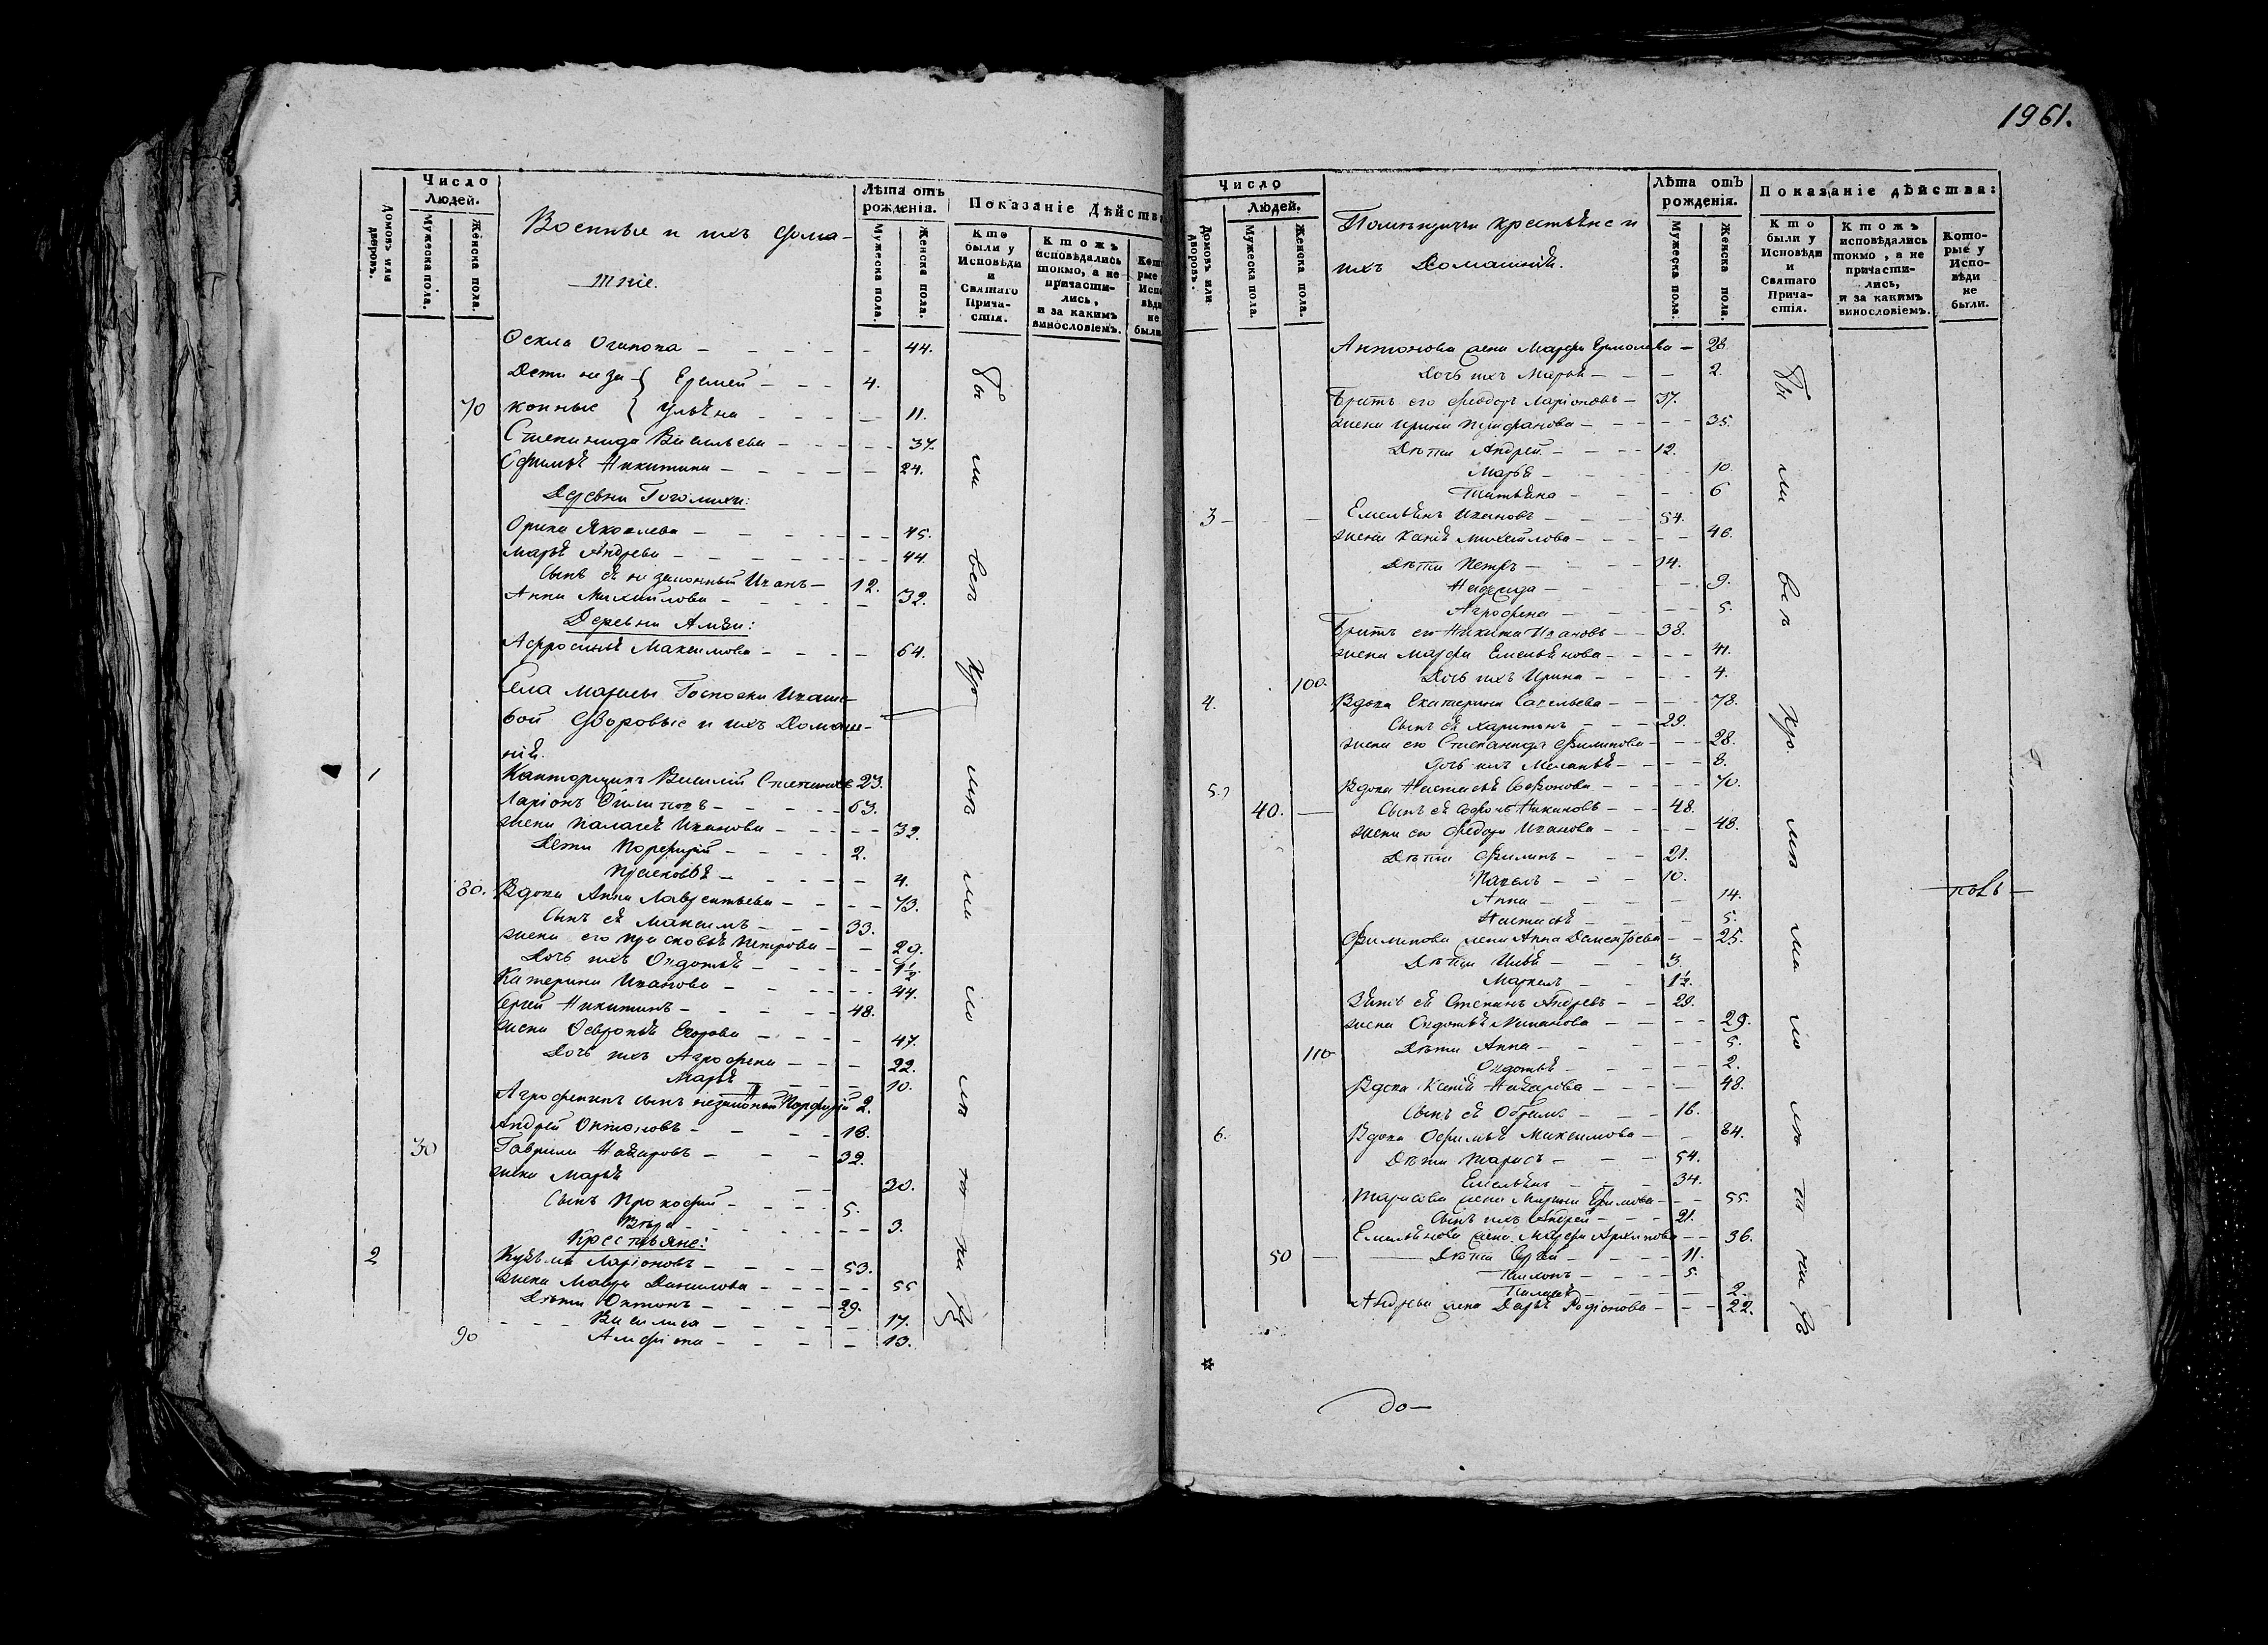 1961.
Число Людей.
Домовъ или дворовъ.
Мужеска пола.
Женска пола.
Военные и ихъ дома-
шніе.
Лѣта отъ рожденія.
Мужеска пола.
Женска пола.
Показаніе Дѣйства
Кто были у Исповѣди и Святаго Прича-стія.
Ктожъ исповѣдались токмо, а не причасти-лись, и за какимъ винословіемъ.
Оекла Осипова - 44.
Дети неза- { Еремей - 4.
70 конные { Ульѣна - 11.
Степанида Васильева - 37.
Офимьѣ Никитина - 24.
Деревни Гоголихи:
Орина Яковлева - 45.
Марьѣ Андреева - 44.
Сынъ еѣ незаконный Иванъ - 12.
Анна Михайлова - 32.
Деревни
Афросиньѣ Максимова - 64.
Села Госпожи Иваше-
вой дворовые и ихъ Домаш-
ніѣ.
1 Канторщикъ Василій Степановъ 23.
Ларіонъ - 63.
жена Палагеѣ Иванова - 32.
Дети Порфирій - 2.
Прасковьѣ - 4.
80. Вдова Анна Лаврентьева - 73.
Сынъ еѣ Максимъ - 33.
жена его Прасковьѣ Петрова - 29.
Дочь ихъ Овдотьѣ - 1½.
Катерина Иванова - 44.
Сергей Никитинъ - 48.
жена Оевроньѣ Егорова - 47.
Дочь ихъ Агрофена - 22.
Марьѣ - 10.
Агрофенинъ сынъ незаконный Порфирій 2.
Андрей Онтоновъ - 18.
30 Гаврила Назаровъ - 32.
жена Марьѣ - 30.
Сынъ Прокофий - 5.
Вѣра - 3.
Крестьяне:
2 Кузьма Ларіоновъ - 53.
жена Мавра Данилова - 55
Дѣти Онтонъ - 29.
Василиса - 17.
90 Алфіона - 13.
Число Людей.
Домовъ или дворовъ.
Мужеска пола.
Женска пола.
Помѣщичьи крестьѣне и
ихъ Домашніѣ.
Лѣта отъ рожденія.
Мужеска пола.
Женска пола.
Показаніе дѣйства:
Кто были у Исповѣди и Святаго Прича-стія.
Ктожъ исповѣдались токмо, а не причасти-лись, и за какимъ винословіемъ.
Кото-рые у Испо-вѣди не были.
Антонова жена Марфа Ермолаева - 26
Дочь ихъ Марьѣ - 2.
Братъ его Феодоръ Ларіоновъ - 37.
жена Ирина - 35.
Дѣти Андрей - 12.
Марьѣ - 10.
Татьѣна - 6
3 - Емельѣнъ Ивановъ - 54.
жена Ксеніѣ Михайлова - 46.
Дѣти Петръ - 14.
Надежда - 9.
Агрофена - 5.
Братъ его Никита Ивановъ - 38.
жена Марфа Емельѣнова - 41.
100. Дочь ихъ Ирина - 4.
4. Вдова Екатерина Савельева - 78.
Сынъ еѣ Харитонъ - 29.
жена его Степанида Филипова - 28.
Дочь ихъ Меланьѣ - 8.
5. Вдова Настасьѣ Софонова - 70.
40. - Сынъ еѣ Софонъ Никановъ - 48.
жена его Федора Иванова - 48.
Дѣти Филипъ - 21.
Павелъ - 10.
Анна - 14.
Настасьѣ - 5.
Филипова жена Анна Дементьева - 25.
Дѣти Ильѣ - 3
Маркелъ - 1½.
Зѣть еѣ Степанъ Андреевъ - 29.
жена Овдотьѣ - 29.
110 Дѣти Анна - 5.
Овдотьѣ - 2.
Вдова Ксеніѣ Назарова - 48.
Сынъ еѣ - 16.
6. Вдова Офимьѣ Максимова - 84.
Дѣти Тарасъ - 54.
Емельѣнъ - 34.
Тарасова жена Марина Ефимова - 55.
Сынъ ихъ Андрей - 21.
Емельѣнова жена Марфа Архипова - 36.
50 - Дѣти Сергѣй - 11.
Тихонъ - 5.
Палагеѣ - 2.
Андреева жена Дарьѣ Родіонова - 22.
до-